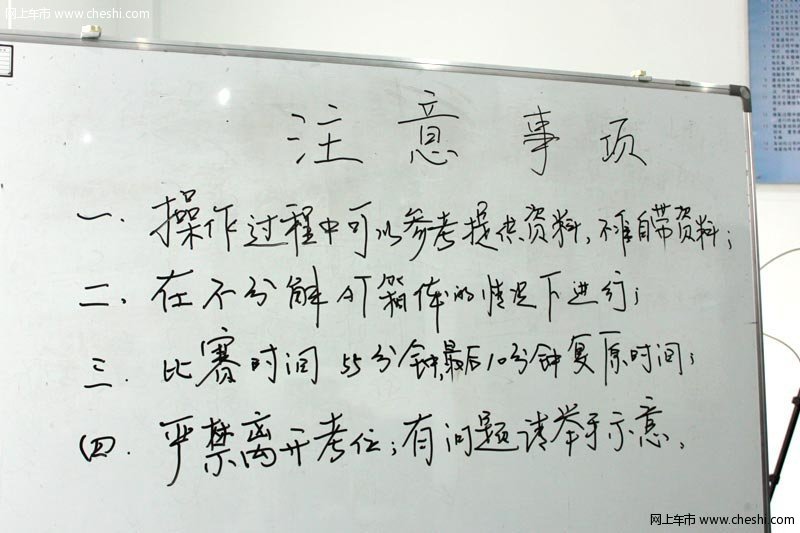 网上车市 www.cheshi.com
注意事项
一.操作过程中可以参考提供资料,不准自带资料;
二.在不分解AT箱体的情况下进行;
三.比赛时间55分钟,最后10分钟复原时间;
四.严禁离开考位;有问题请举手示意.
网上车市 www.cheshi.com